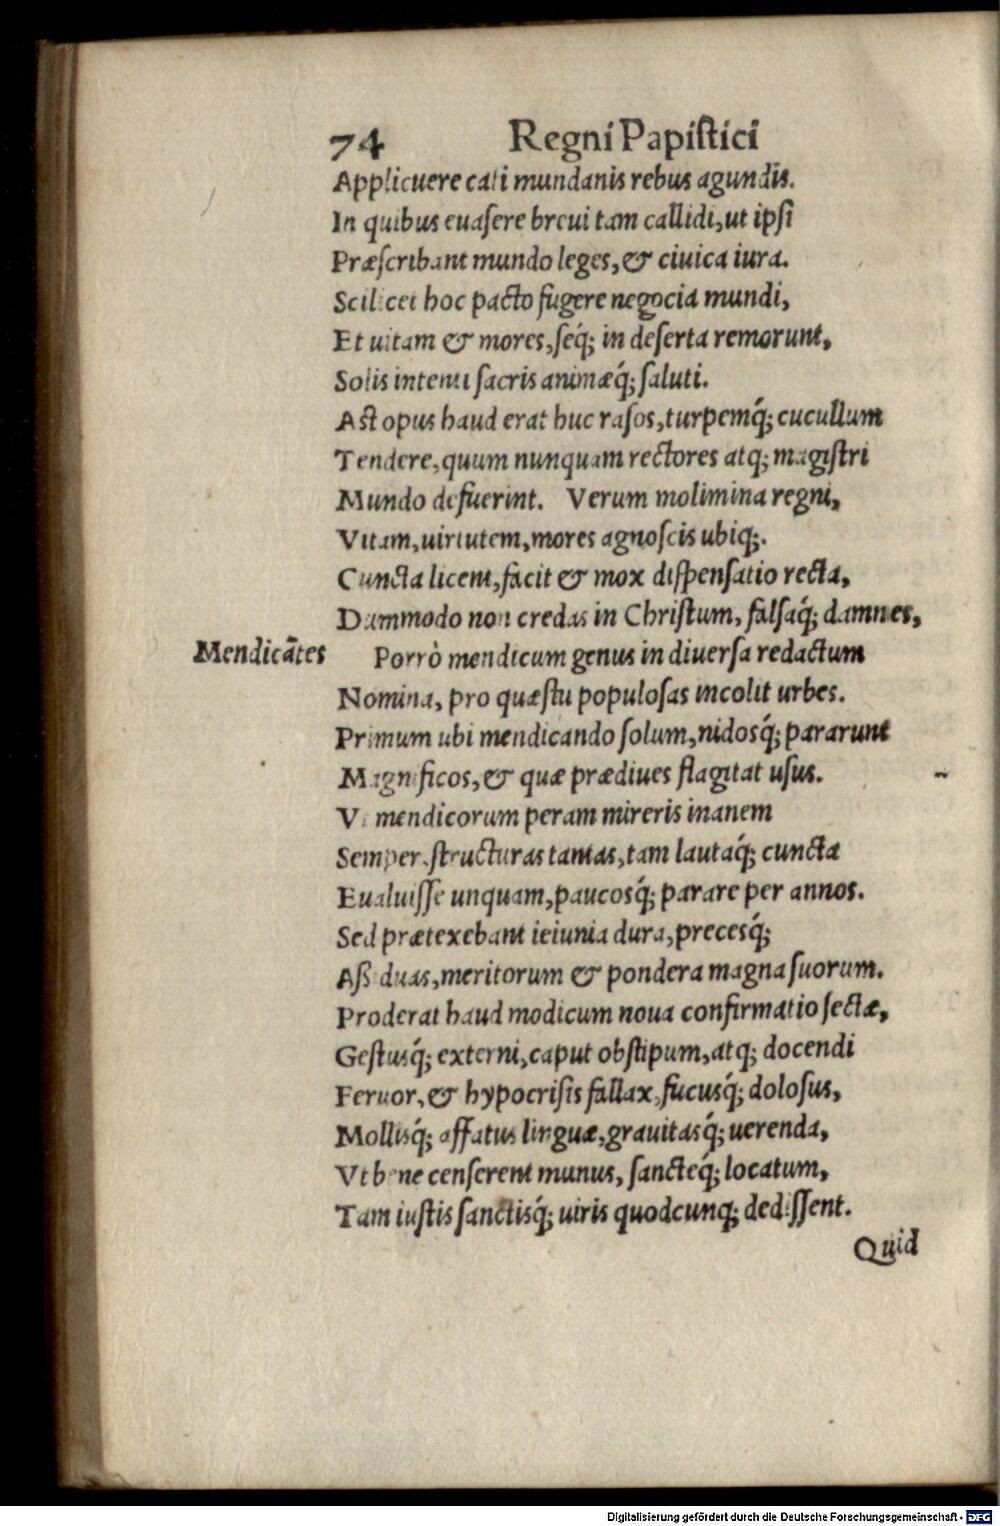 74 Regni Papistici
Applicuere cati mundanis rebus agundis.
In quibus euaſere breui tam callidi, ut ipſi
Præſcribant mundo leges, & ciuica iura.
Scilicet hoc pacto fugere negocia mundi,
Et uitam & mores, ſeq́; in deſerta remorunt,
Solis intenti ſacris animæq́; ſaluti.
Aſt opus haud erat huc raſos, turpemq́; cucullum
Tendere, quum nunquam rectores atq; magiſtri
Mundo defuerint. Verum molimina regni,
Vitam, uirtutem, mores agnoſcis ubiq;.
Cuncta licent, facit & mox diſpenſatio recta,
Dummodo non credas in Chriſtum, falſaq́; damnes,
Mendicãtes Porrò mendicum genus in diuerſa redactum
Nomina, pro quæſtu populoſas incolit urbes.
Primum ubi mendicando ſolum, nidosq́; pararunt
Magnificos, & quæ prædiues flagitat uſus.
Vt mendicorum peram mireris inanem
Semper, ſtructuras tantas, tam lautaq́; cuncta
Eualuiſſe unquam, paucosq́; parare per annos.
Sed prætexebant ieiunia dura, precesq́;
Aßiduas, meritorum & pondera magna ſuorum.
Proderat haud modicum noua confirmatio ſectæ,
Geſtusq́; externi, caput obſtipum, atq; docendi
Feruor, & hypocriſis fallax, fucusq́; doloſus,
Mollisq́; affatus linguæ, grauitasq́; uerenda,
Vt bene cenſerent munus, ſancteq́; locatum,
Tam iuſtis ſanctisq́; uiris quodcunq; dediſſent.
Quid
Digitalisierung gefördert durch die Deutsche Forschungsgemeinschaft - DFG